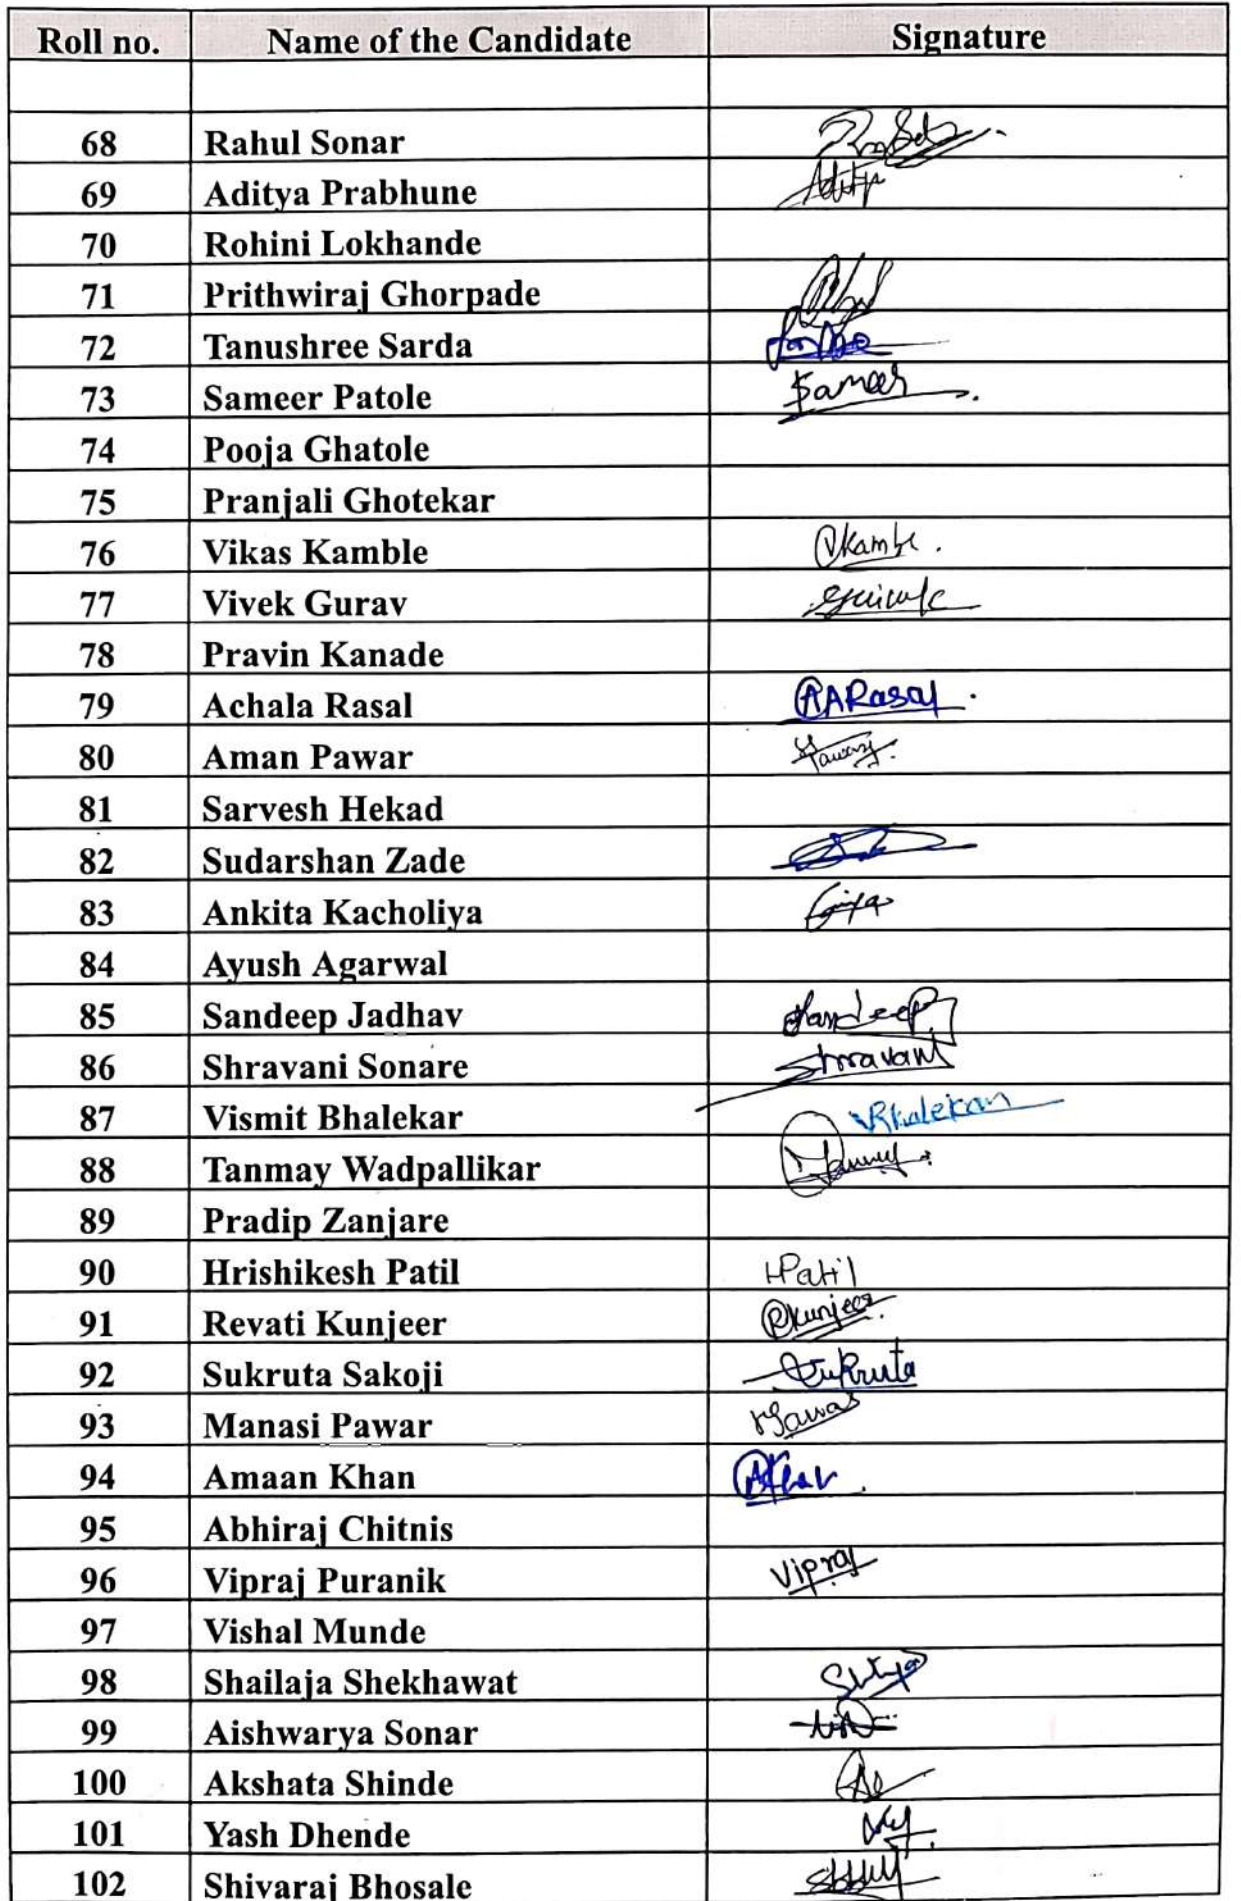 Roll no. Name of the Candidate Signature
68 Rahul Sonar
69 Aditya Prabhune Aditya
70 Rohini Lokhande
71 Prithwiraj Ghorpade
72 Tanushree Sarda
73 Sameer Patole Sameer
74 Pooja Ghatole
75 Pranjali Ghotekar
76 Vikas Kamble VKamble.
77 Vivek Gurav
78 Pravin Kanade
79 Achala Rasal AARasal.
80 Aman Pawar
81 Sarvesh Hekad
82 Sudarshan Zade
83 Ankita Kacholiya
84 Ayush Agarwal
85 Sandeep Jadhav Sandeep
86 Shravani Sonare Shravani
87 Vismit Bhalekar VBhalekar
88 Tanmay Wadpallikar
89 Pradip Zanjare
90 Hrishikesh Patil HPatil
91 Revati Kunjeer RKunjeer.
92 Sukruta Sakoji Sukruta
93 Manasi Pawar
94 Amaan Khan AKhan.
95 Abhiraj Chitnis
96 Vipraj Puranik Vipraj
97 Vishal Munde
98 Shailaja Shekhawat
99 Aishwarya Sonar
100 Akshata Shinde
101 Yash Dhende
102 Shivaraj Bhosale